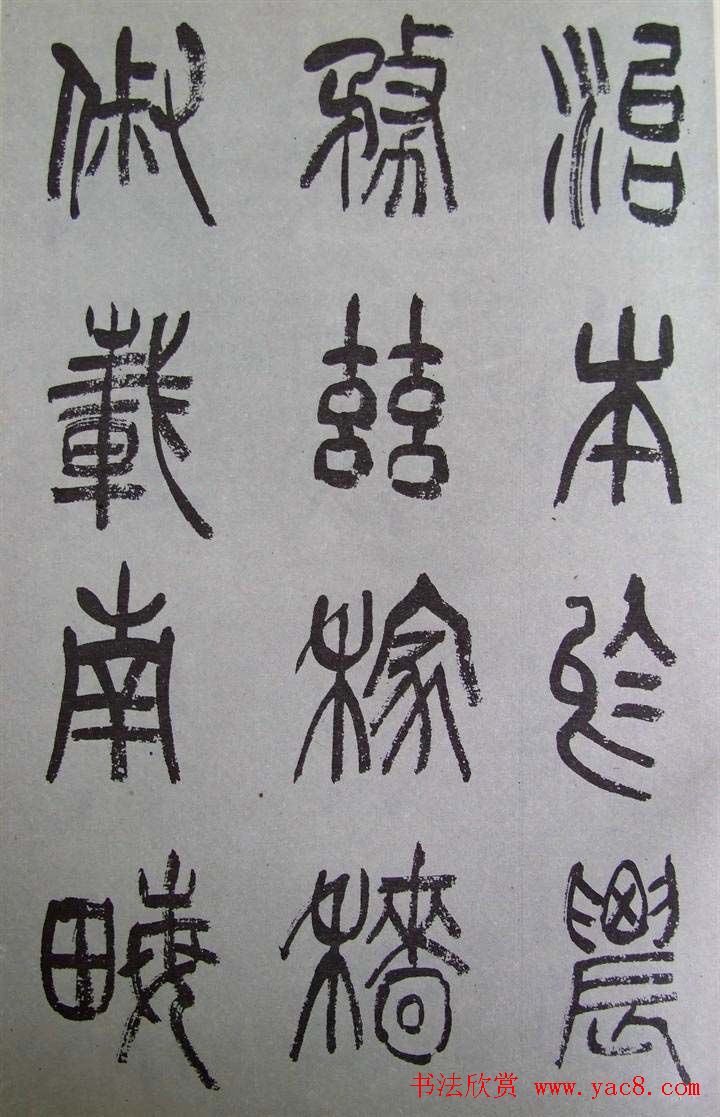 治本於農
務茲稼穡
俶載南畝
书法欣赏 www.yac8.com